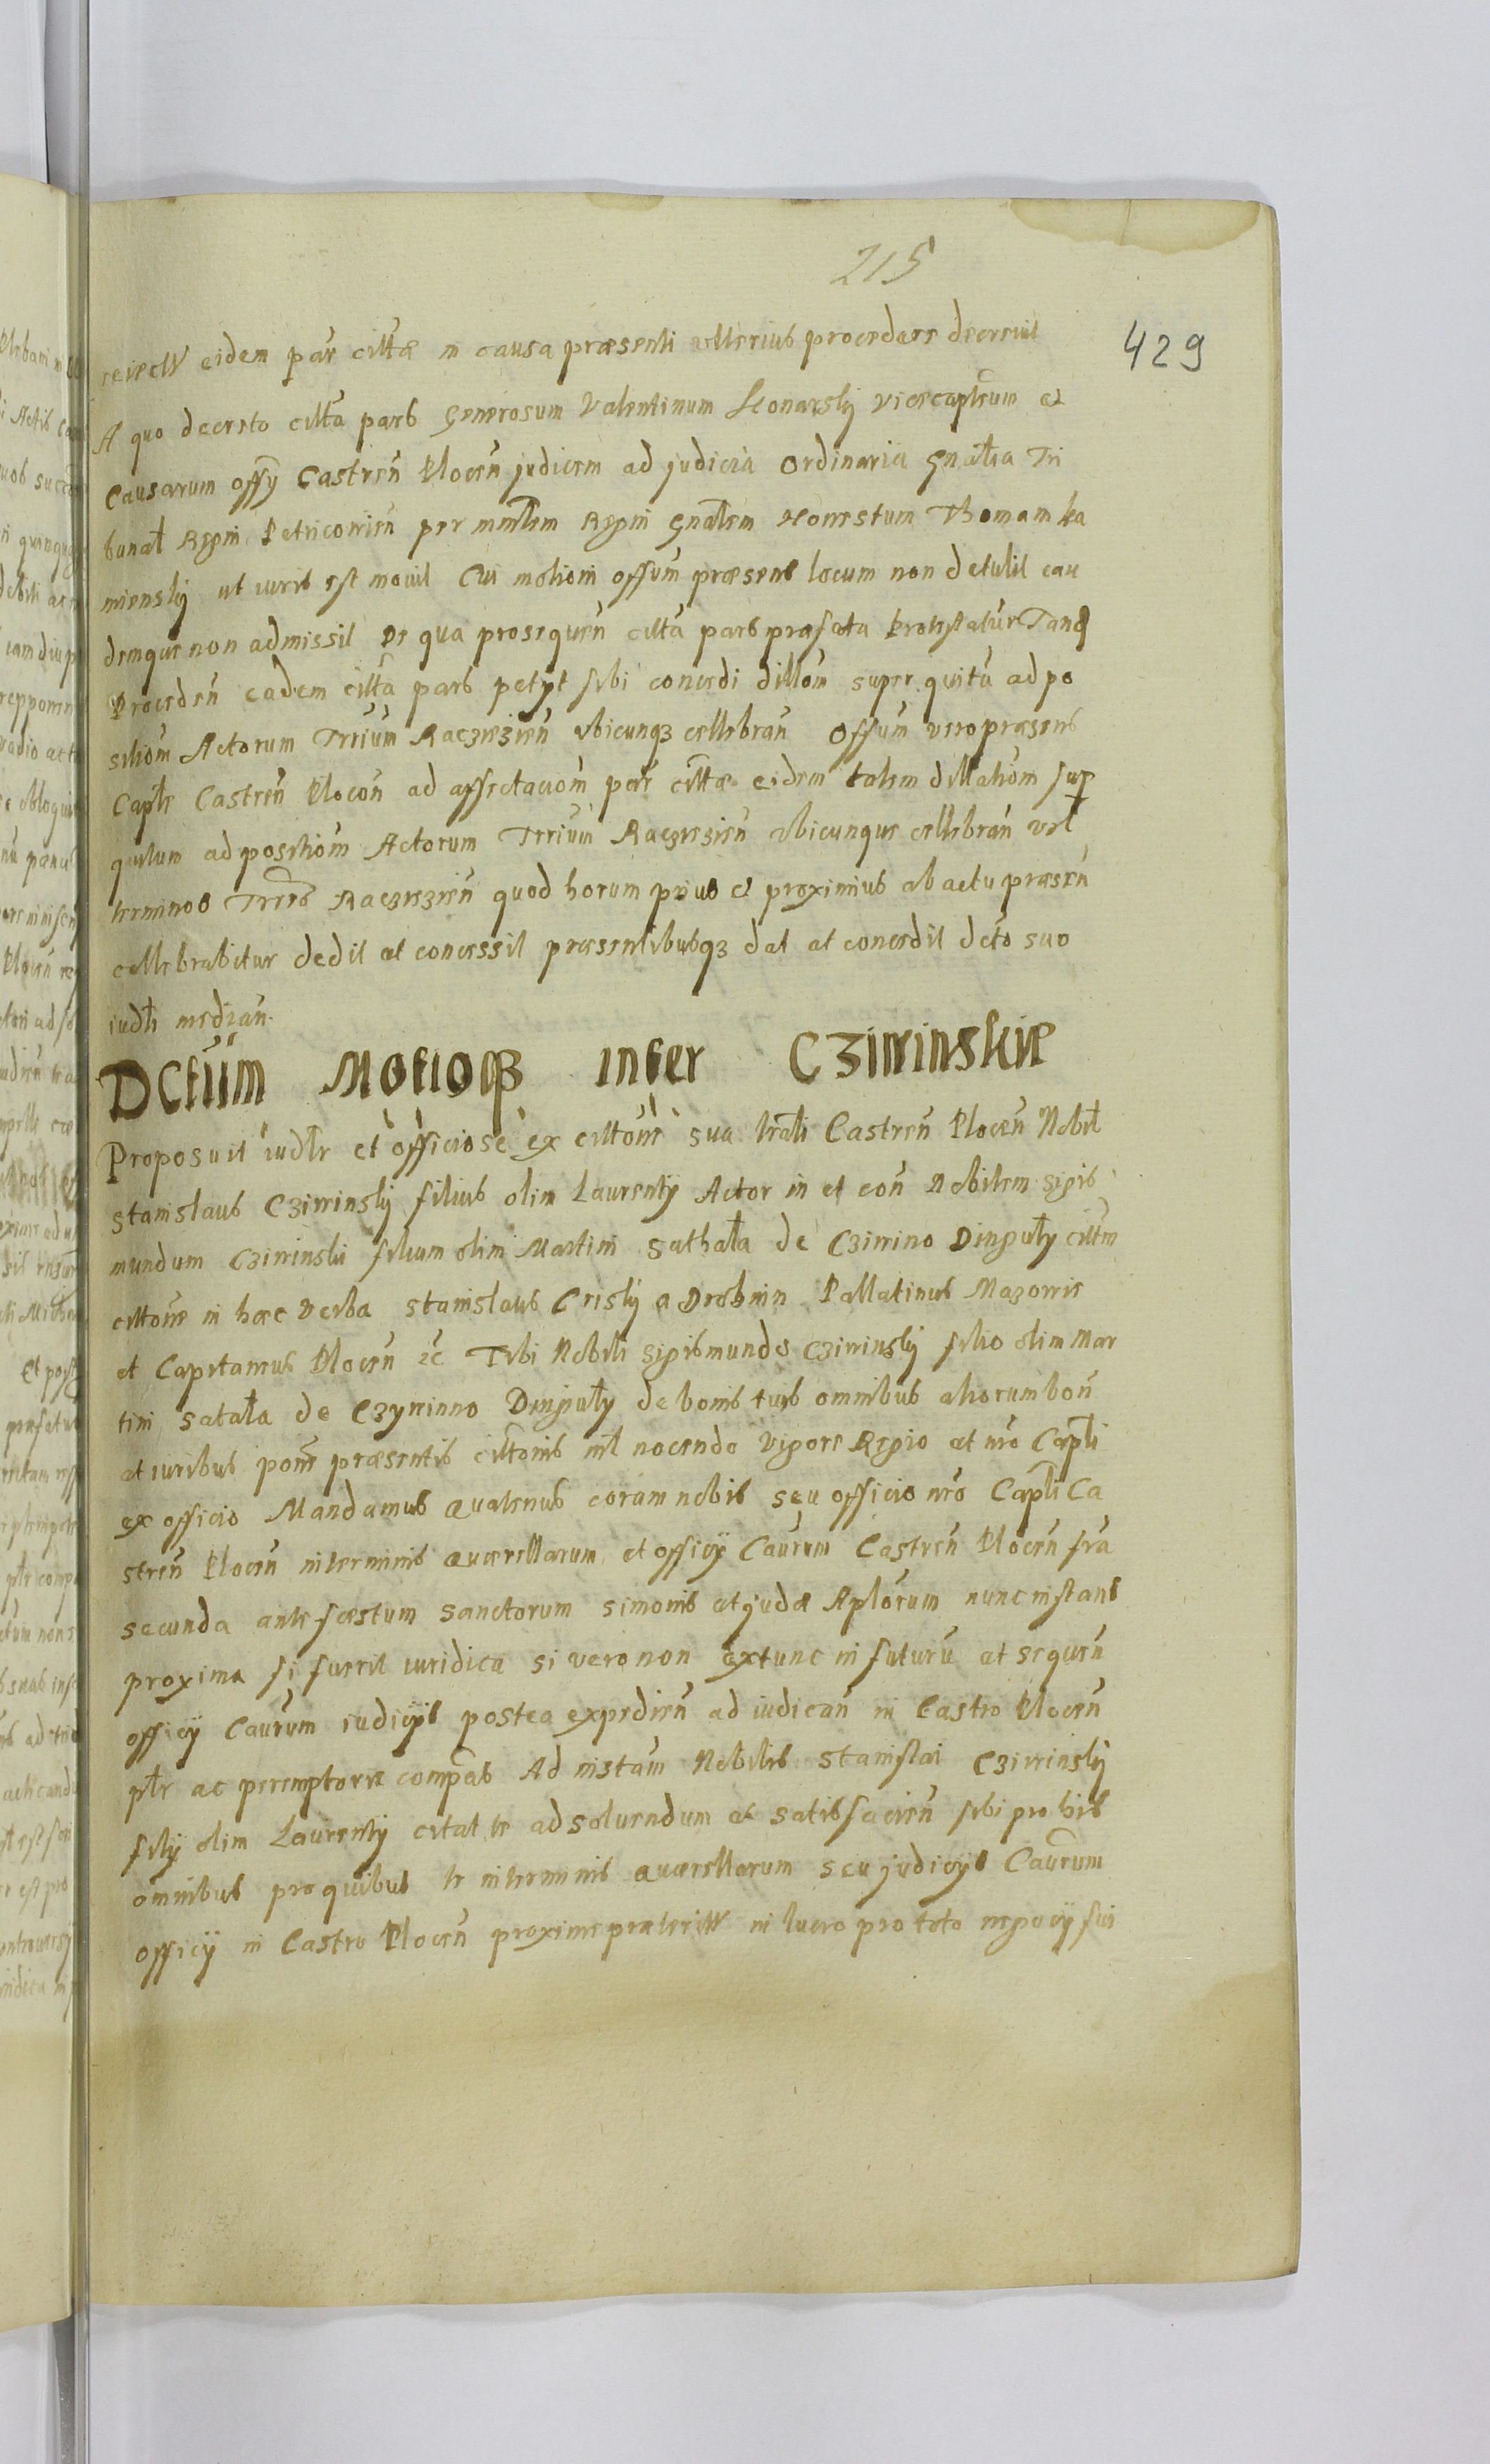 215
429
reiectis eidem par cittae in causa praesenti ulterius procedere decrevit
A quo decreto citta pars Generosum Valentinum Konarsky vicecapteum et
Causarum offy Castren Plocen judicem ad judicia Ordinaria Gnalia Tri
bunal Regni Petricovien per mnlem Regni Gnalem Honestum Thomam ka
miensky ut iuris est movit Cui motioni offum praesens locum non detulit ean
demque non admissit De qua prosequen citta pars praefata Protestatur Tandē
Proceden eadem citta pars petyt sibi concedi dillom super quitu ad po
sitiom Actorum Trrium Racziezien ubicunqz cellebran Offum vero praesens
Capte Castren Plocen ad affectaciom par cittae eidem talem dillatiom sup
quitum ad positiom Actorum Trrium Racziezien ubicunque cellebran vel
terminos Trres Racziezien quod horum prius et proximius ab actu praesen
cellebrabitur dedit et concessit praesentibusqz dat et concedit dcto suo
iudli median
DCtum Motioqz inter Czivinskie
Proposuit iudlr et officiose ex cittone sua lrali Castren Plocen Nobil
Stanislaus Czivinsky filius olim Laurenty Actor in et con Nobilem Sigis
mundum Czivinski filium olim Martini Sathała de Czivino Dinguły cittm
cittone in haec verba Stanislaus Crisky a Drobnin Pallatinus Mazovie
et Capitaneus Plocen ec Tibi Nobili Sigismundo Czivinsky filio olim Mar
tini Satała de Czyvinno Dinguły de bonis tuis omnibus aliorum bon
et iuribus pone praesentis cittonis nil nocendo Vigore Regio et nro Capli
ex officio Mandamus Quatenus coram nobis seu officio nro Capli Ca
stren Plocen in terminis Quaerellarum et officy Caurum Castren Plocen fra
secunda ante faestum Sanctorum Simonis et Judae Aplorum nunc instans
proxima si fuerit iuridica si vero non extunc in futuru et sequen
officy Caurum iudicys postea expedien ad iudican in Castro Plocen
plr ac peremptorie compeas Ad instam Nobilis Stanislai Czivinsky
fily olim Laurenty citat te ad solvendum et satisfacien sibi pro his
omnibus pro quibus te in terminis Quaerellarum seu judicys Caurum
officy in Castro Plocen proxime praeteritis in lucro pro toto negocy sui